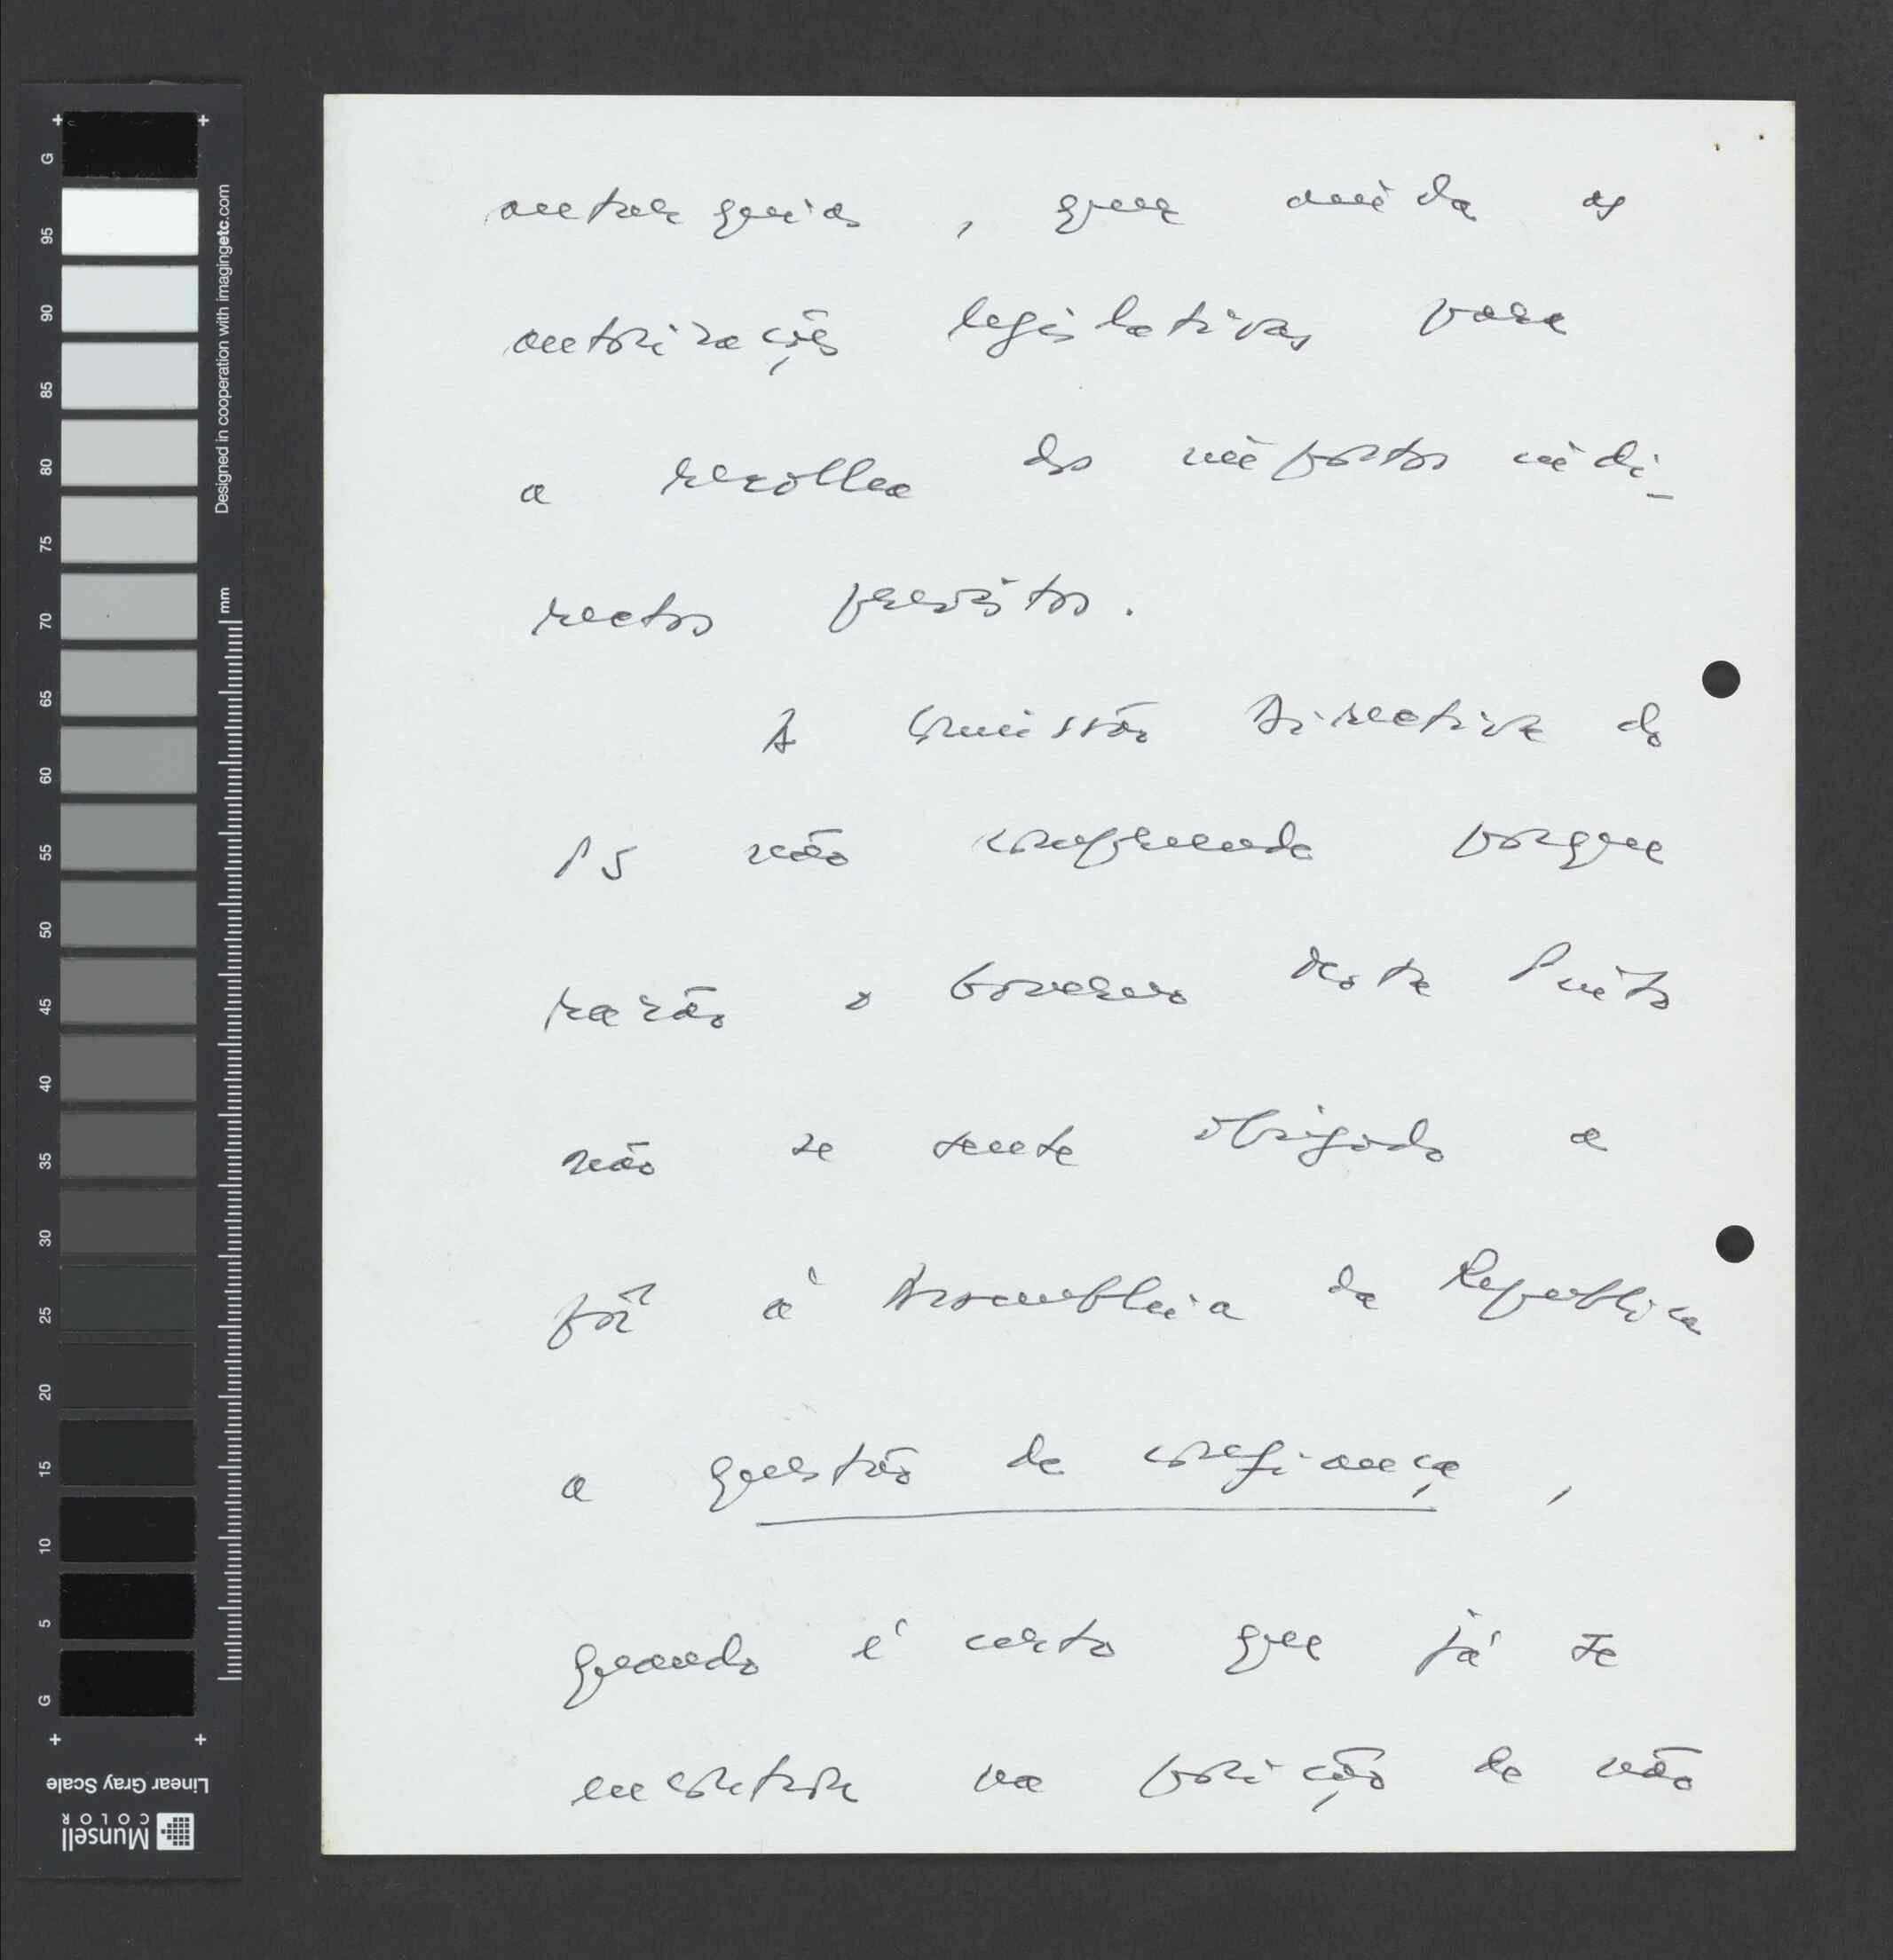 autarquias, quer ainda as
autorizações legislativas para
a recolha dos impostos indi-
rectos previstos.
A Comissão Directiva do
PS não compreende porque
razão o Governo Mota Pinto
não se sente obrigado a
pôr à Assembleia da Republica
a questão de confiança,
quando é certo que já se
encontra na posição de não
G
95
90
85
80
75
70
65
60
55
50
45
40
35
30
25
20
15
10
5
G
Designed in cooperation with imagingetc.com
mm
Linear Gray Scale
Munsell
COLOR